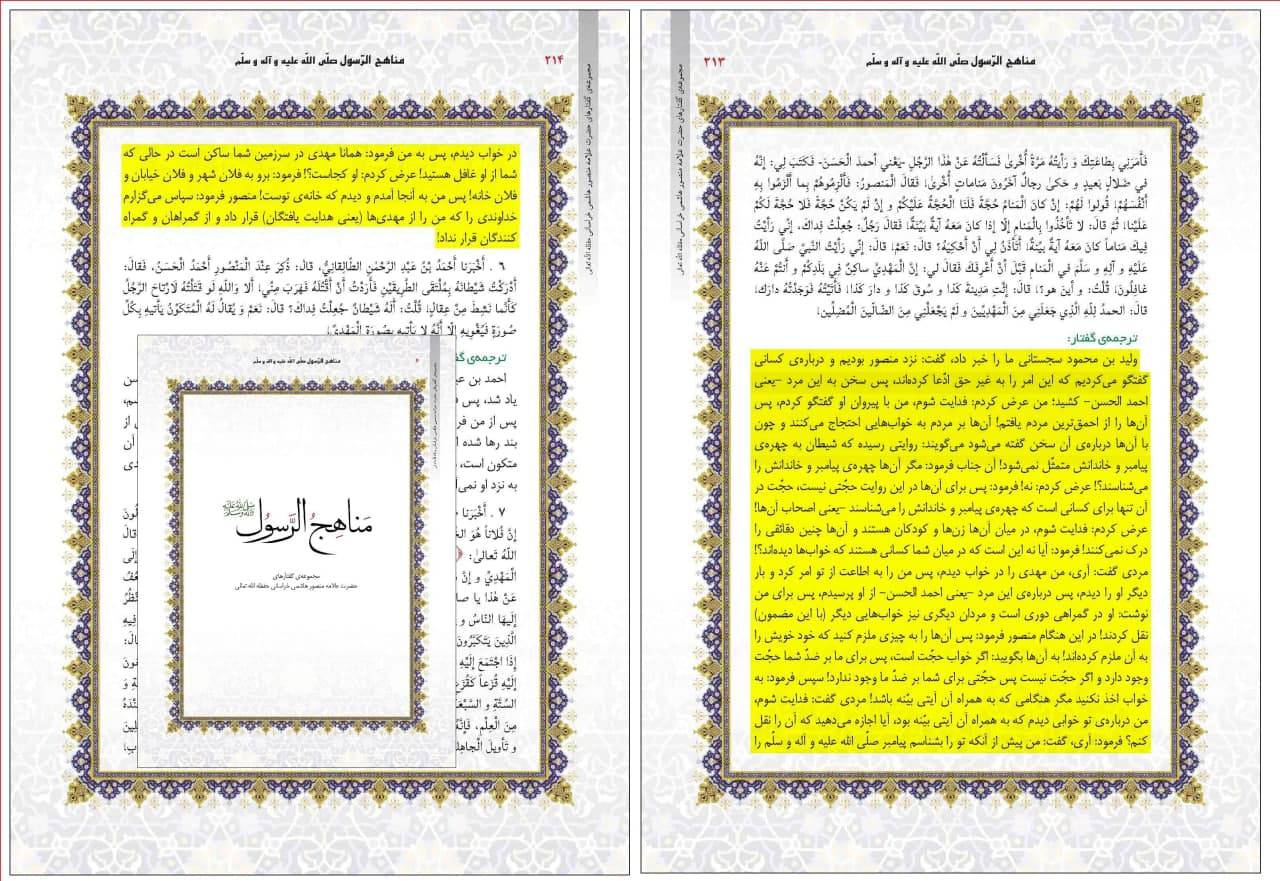 مناهج الرّسول صلّی الله علیه و آله و سلّم
۲۱۳
مجموعه‌ی گفتارهای حضرت علامه منصور هاشمی خراسانی حفظه الله تعالی
فَأَمَرَنِي بِطَاعَتِكَ وَ رَأَيْتُهُ مَرَّةً أُخْرَىٰ فَسَأَلْتُهُ عَنْ هٰذَا الرَّجُلِ -يَعْنِي أَحمدَ الْحَسَنَ- فَكَتَبَ لِي: إِنَّهُ
فِي ضَلَالٍ بَعِيدٍ وَ حَكىٰ رِجالٌ آخَرُونَ مَناماتٍ أُخْرىٰ، فَقَالَ الْمَنصورُ: فَأَلْزِمُوهُمْ بِما أَلْزَمُوا بِهِ
أَنْفُسَهُمْ، قُولُوا لَهُمْ: إِنْ كانَ الْمَنامُ حُجَّةً فَلَنَا الْحُجَّةُ عَلَيْكُمْ وَ إِنْ لَمْ يَكُنْ حُجَّةً فَلا حُجَّةَ لَكُمْ
عَلَيْنَا، ثُمَّ قَالَ: لا تَأْخُذُوا بِالْمَنامِ إِلّا إِذا كانَ مَعَهُ آيَةٌ بَيِّنَةٌ، فَقالَ رَجُلٌ: جُعِلْتُ فِداكَ، إِنِّي رَأَيْتُ
فِيكَ مَناماً كانَ مَعَهُ آيَةٌ بَيِّنَةٌ، أَتَأْذَنُ لِي أَنْ أَحْكِيَهُ؟ قالَ: نَعَمْ، قالَ: إِنِّي رَأَيْتُ النَّبِيَّ صَلَّى اللّٰهُ
عَلَيْهِ وَ آلِهِ وَ سَلَّمَ فِي الْمَنامِ قَبْلَ أَنْ أَعْرِفَكَ فَقالَ لِي: إِنَّ الْمَهْدِيَّ ساكِنٌ فِي بَلَدِكُمْ وَ أَنْتُمْ عَنْهُ
غافِلُونَ، قُلْتُ: وَ أَينَ هو؟، قالَ: إِئْتِ مَدِينَةَ كَذا وَ سُوقَ كَذا وَ دارَ كَذا، فَأَتَيْتُهُ فَوَجَدْتُهُ دارَكَ،
قالَ: الحمدُ لِلّٰهِ الَّذِي جَعَلَنِي مِنَ الْمَهْدِيِّينَ وَ لَمْ يَجْعَلْنِي مِنَ الضّالِّينَ الْمُضِلِّينَ.
ترجمه‌ی گفتار:
ولید بن محمود سجستانی ما را خبر داد، گفت: نزد منصور بودیم و درباره‌ی کسانی
گفتگو می‌کردیم که این امر را به غیر حق ادّعا کرده‌اند، پس سخن به این مرد -یعنی
احمد الحسن- کشید؛ من عرض کردم: فدایت شوم، من با پیروان او گفتگو کردم، پس
آن‌ها را از احمق‌ترین مردم یافتم! آن‌ها بر مردم به خواب‌هایی احتجاج می‌کنند و چون
با آن‌ها درباره‌ی آن سخن گفته می‌شود می‌گویند: روایتی رسیده که شیطان به چهره‌ی
پیامبر و خاندانش متمثّل نمی‌شود! آن جناب فرمود: مگر آن‌ها چهره‌ی پیامبر و خاندانش را
می‌شناسند؟! عرض کردم: نه! فرمود: پس برای آن‌ها در این روایت حجّتی نیست، حجّت در
آن تنها برای کسانی است که چهره‌ی پیامبر و خاندانش را می‌شناسند -یعنی اصحاب آن‌ها!
عرض کردم: فدایت شوم، در میان آن‌ها زن‌ها و کودکان هستند و آن‌ها چنین دقائقی را
درک نمی‌کنند! فرمود: آیا نه این است که در میان شما کسانی هستند که خواب‌ها دیده‌اند؟!
مردی گفت: آری، من مهدی را در خواب دیدم، پس من را به اطاعت از تو امر کرد و بار
دیگر او را دیدم، پس درباره‌ی این مرد -یعنی احمد الحسن- از او پرسیدم، پس برای من
نوشت: او در گمراهی دوری است و مردان دیگری نیز خواب‌هایی دیگر (با این مضمون)
نقل کردند! در این هنگام منصور فرمود: پس آن‌ها را به چیزی ملزم کنید که خود خویش را
به آن ملزم کرده‌اند! به آن‌ها بگویید: اگر خواب حجّت است، پس برای ما بر ضدّ شما حجّت
وجود دارد و اگر حجّت نیست پس حجّتی برای شما بر ضدّ ما وجود ندارد! سپس فرمود: به
خواب اخذ نکنید مگر هنگامی که به همراه آن آیتی بیّنه باشد! مردی گفت: فدایت شوم،
من درباره‌ی تو خوابی دیدم که به همراه آن آیتی بیّنه بود، آیا اجازه می‌دهید که آن را نقل
کنم؟ فرمود: آری، گفت: من پیش از آنکه تو را بشناسم پیامبر صلّی الله علیه و آله و سلّم را
مناهج الرّسول صلّی الله علیه و آله و سلّم
۲۱۴
مجموعه‌ی گفتارهای حضرت علامه منصور هاشمی خراسانی حفظه الله تعالی
در خواب دیدم، پس به من فرمود: همانا مهدی در سرزمین شما ساکن است در حالی که
شما از او غافل هستید! عرض کردم: او کجاست؟! فرمود: برو به فلان شهر و فلان خیابان و
فلان خانه! پس من به آنجا آمدم و دیدم که خانه‌ی توست! منصور فرمود: سپاس می‌گزارم
خداوندی را که من را از مهدی‌ها (یعنی هدایت یافتگان) قرار داد و از گمراهان و گمراه
کنندگان قرار نداد!
۶ . أَخْبَرَنا أَحْمَدُ بْنُ عَبدِ الرَّحْمٰنِ الطّالِقانِيُّ، قالَ: ذُكِرَ عِنْدَ الْمَنْصُورِ أَحْمَدُ الْحَسَنُ، فَقَالَ:
أَدْرَكْتُ شَيْطانَهُ بِمُلْتَقَى الطَّرِيقَيْنِ فَأَرَدْتُ أَنْ أَقْتُلَهُ فَهَرَبَ مِنِّي، أَلا وَاللّٰهِ لَو قَتَلْتُهُ لَارْتاحَ الرَّجُلُ
كَأَنَّما نَشِطَ مِنْ عِقالٍ، قُلْتُ: أَلَهُ شَيْطانٌ جُعِلْتُ فِداكَ؟ قالَ: نَعَمْ وَ يُقَالُ لَهُ الْمُتَكَوِّنُ يَأْتِيهِ بِكُلِّ
صُورَةٍ فَيُغْوِيهِ إِلّا أَنَّهُ لا يَأْتِيهِ بِصُورَةِ الْمَهْدِيِّ.
ترجمه‌ی
احمد بن
یاد شد، پس
پس از من
بند رها شده آن
متکون است،
به نزد او
۷ . أَخْبَرَنا
إِنَّ فُلاناً هُوَ قالَ
اللّٰهُ تَعالىٰ: إِلَى
الْمَهْدِيِّ وَ إِنَّ
عَنْ هٰذا يا
إِلَيْهَا النّاسُ وَ فِيهِ
الَّذِينَ يَتَكَبَّرُونَ
إِذَا اجْتَمَعَ إِلَيْهِ
إِلَيْهِ قُزَعاً كَقُزَعِ وَ
السِّتَّةُ وَ
مِنَ الْعِلْمِ، فَإِنَّهُ
وَ تَأْوِيلَ
مناهج الرّسول صلّی الله علیه و آله و سلّم
مَناهِجُ الرَّسول
مجموعه‌ی گفتارهای
حضرت علامه منصور هاشمی خراسانی حفظه الله تعالی